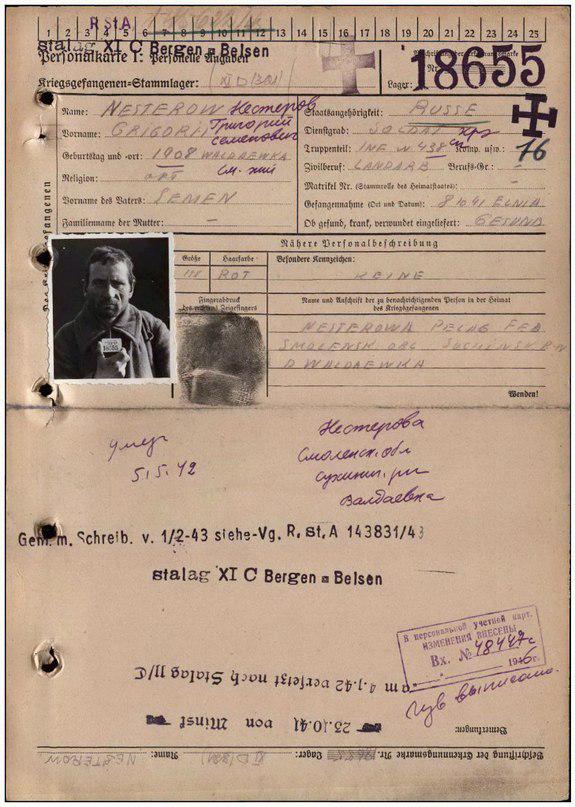 R St A
1 2 3 4 5 6 7 8 9 10 11 12 13 14 15 16 17 18 19 20 21 22 23 24 25
stalag XI C Bergen = Belsen
Personalkarte I: Personelle Angaben
Kriegsgefangenen-Stammlager: XI D (321)
Lager: 18655
Name: NESTEROW Нестеров
Vorname: GRIGORII Григорий
семенович
Geburtstag und -ort: 1908 WALDAEWKA
Religion: ORT
Vorname des Vaters: SEMEN
Familienname der Mutter: –
Staatsangehörigkeit: RUSSE
Dienstgrad: SOLDAT кр
Truppenteil: INF N 438 Komp. usw.:
76
Zivilberuf: LANDARB Berufs-Gr.: –
Matrikel Nr. (Stammrolle des Heimatstaates): –
Gefangennahme (Ort und Datum): 8 10 41 ELNIA
Ob gesund, krank, verwundet eingeliefert: GESUND
Nähere Personalbeschreibung
Größe Haarfarbe Besondere Kennzeichen:
ROT KEINE
Fingerabdruck
des rechten Zeigefingers
Name und Anschrift der zu benachrichtigenden Person in der Heimat
des Kriegsgefangenen
NESTEROWA PELAG FED
SMOLENSK OBL SUCHINSK RN
D WALDAEWKA
18655
Wenden!
умер
5.5.42
Нестерова
Смоленск. обл
сухинич. рн
Валдаевка
Gem. m. Schreib. v. 1/2-43 siehe-Vg. R. St. A 143831/43
stalag XI C Bergen = Belsen
В персональной учетной карт.
ИЗМЕНЕНИЯ ВНЕСЕНЫ
Вх. № 48447с
1946 г.
выписано
am 4.1.42 versetzt nach Stalag 11/C
23.10.41 von Minsk
Bemerkungen:
Beschriftung der Erkennungsmarke Nr. Lager: XI D (321) Name: NESTEROW